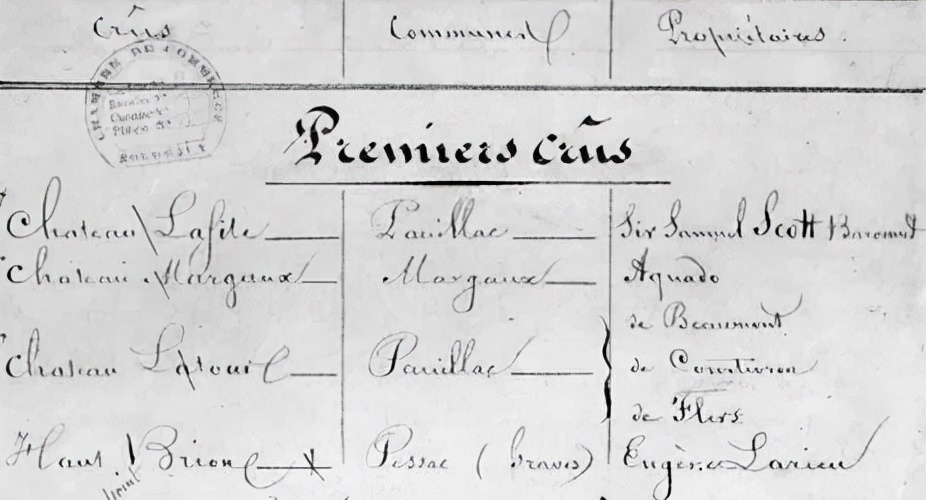 Crûs Communes Propriétaires.
CHAMBRE DE COMMERCE
Premiers crûs
Chateau Lafite Pauillac Sir Samuel Scott Baronnet
Chateau Margaux Margaux Aguado
de Beaumont
Chateau Latour Pauillac de Courtivron
de Flers
Haut Brion Pessac (Graves) Eugène Larieu